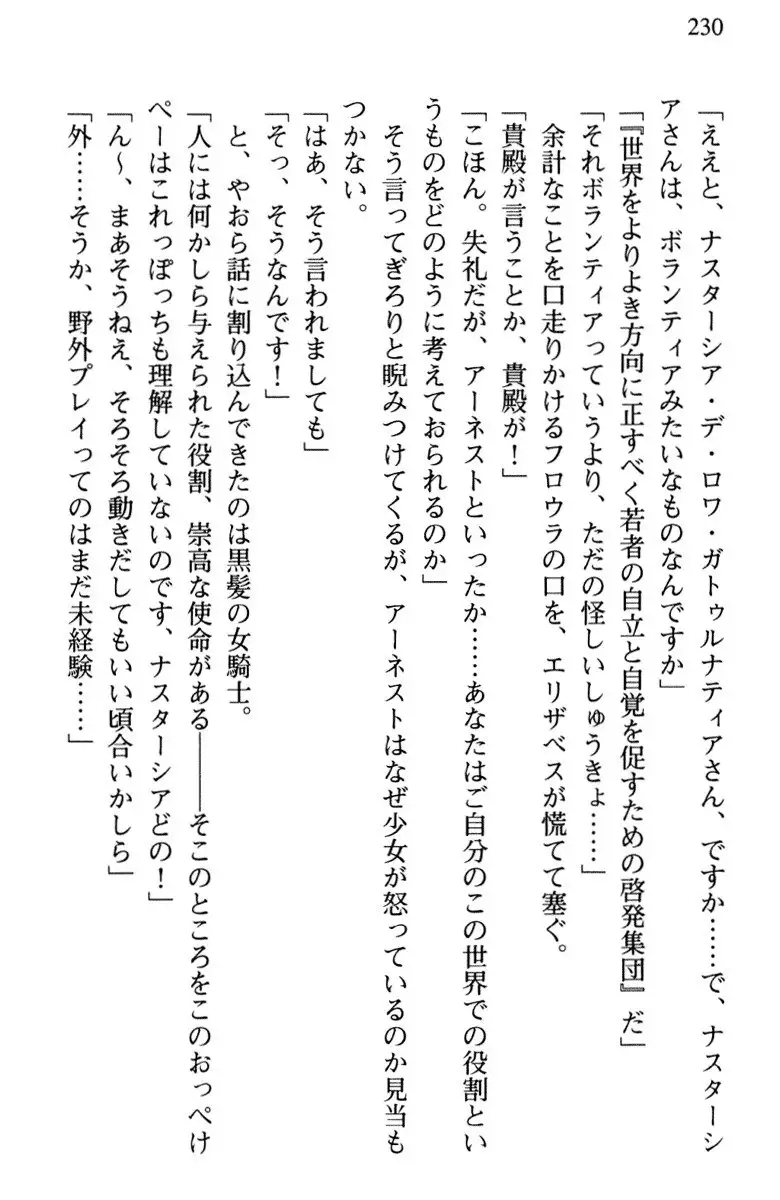 230
「ええと、ナスターシア・デ・ロワ・ガトゥルナティアさん、ですか……で、ナスターシ
アさんは、ボランティアみたいなものなんですか」
「『世界をよりよき方向に正すべく若者の自立と自覚を促すための啓発集団』だ」
「それボランティアっていうより、ただの怪しいしゅうきょ……」
余計なことを口走りかけるフロウラの口を、エリザベスが慌てて塞ぐ。
「貴殿が言うことか、貴殿が！」
「こほん。失礼だが、アーネストといったか……あなたはご自分のこの世界での役割とい
うものをどのように考えておられるのか」
そう言ってぎろりと睨みつけてくるが、アーネストはなぜ少女が怒っているのか見当も
つかない。
「はあ、そう言われましても」
「そっ、そうなんです！」
と、やおら話に割り込んできたのは黒髪の女騎士。
「人には何かしら与えられた役割、崇高な使命がある――そこのところをこのおっぺけ
ぺーはこれっぽっちも理解していないのです、ナスターシアどの！」
「ん～、まあそうねえ、そろそろ動きだしてもいい頃合いかしら」
「外……そうか、野外プレイってのはまだ未経験……」